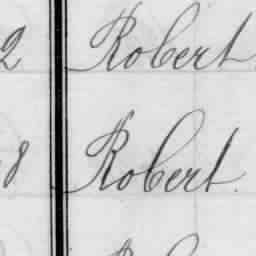 2 Robert
8 Robert.